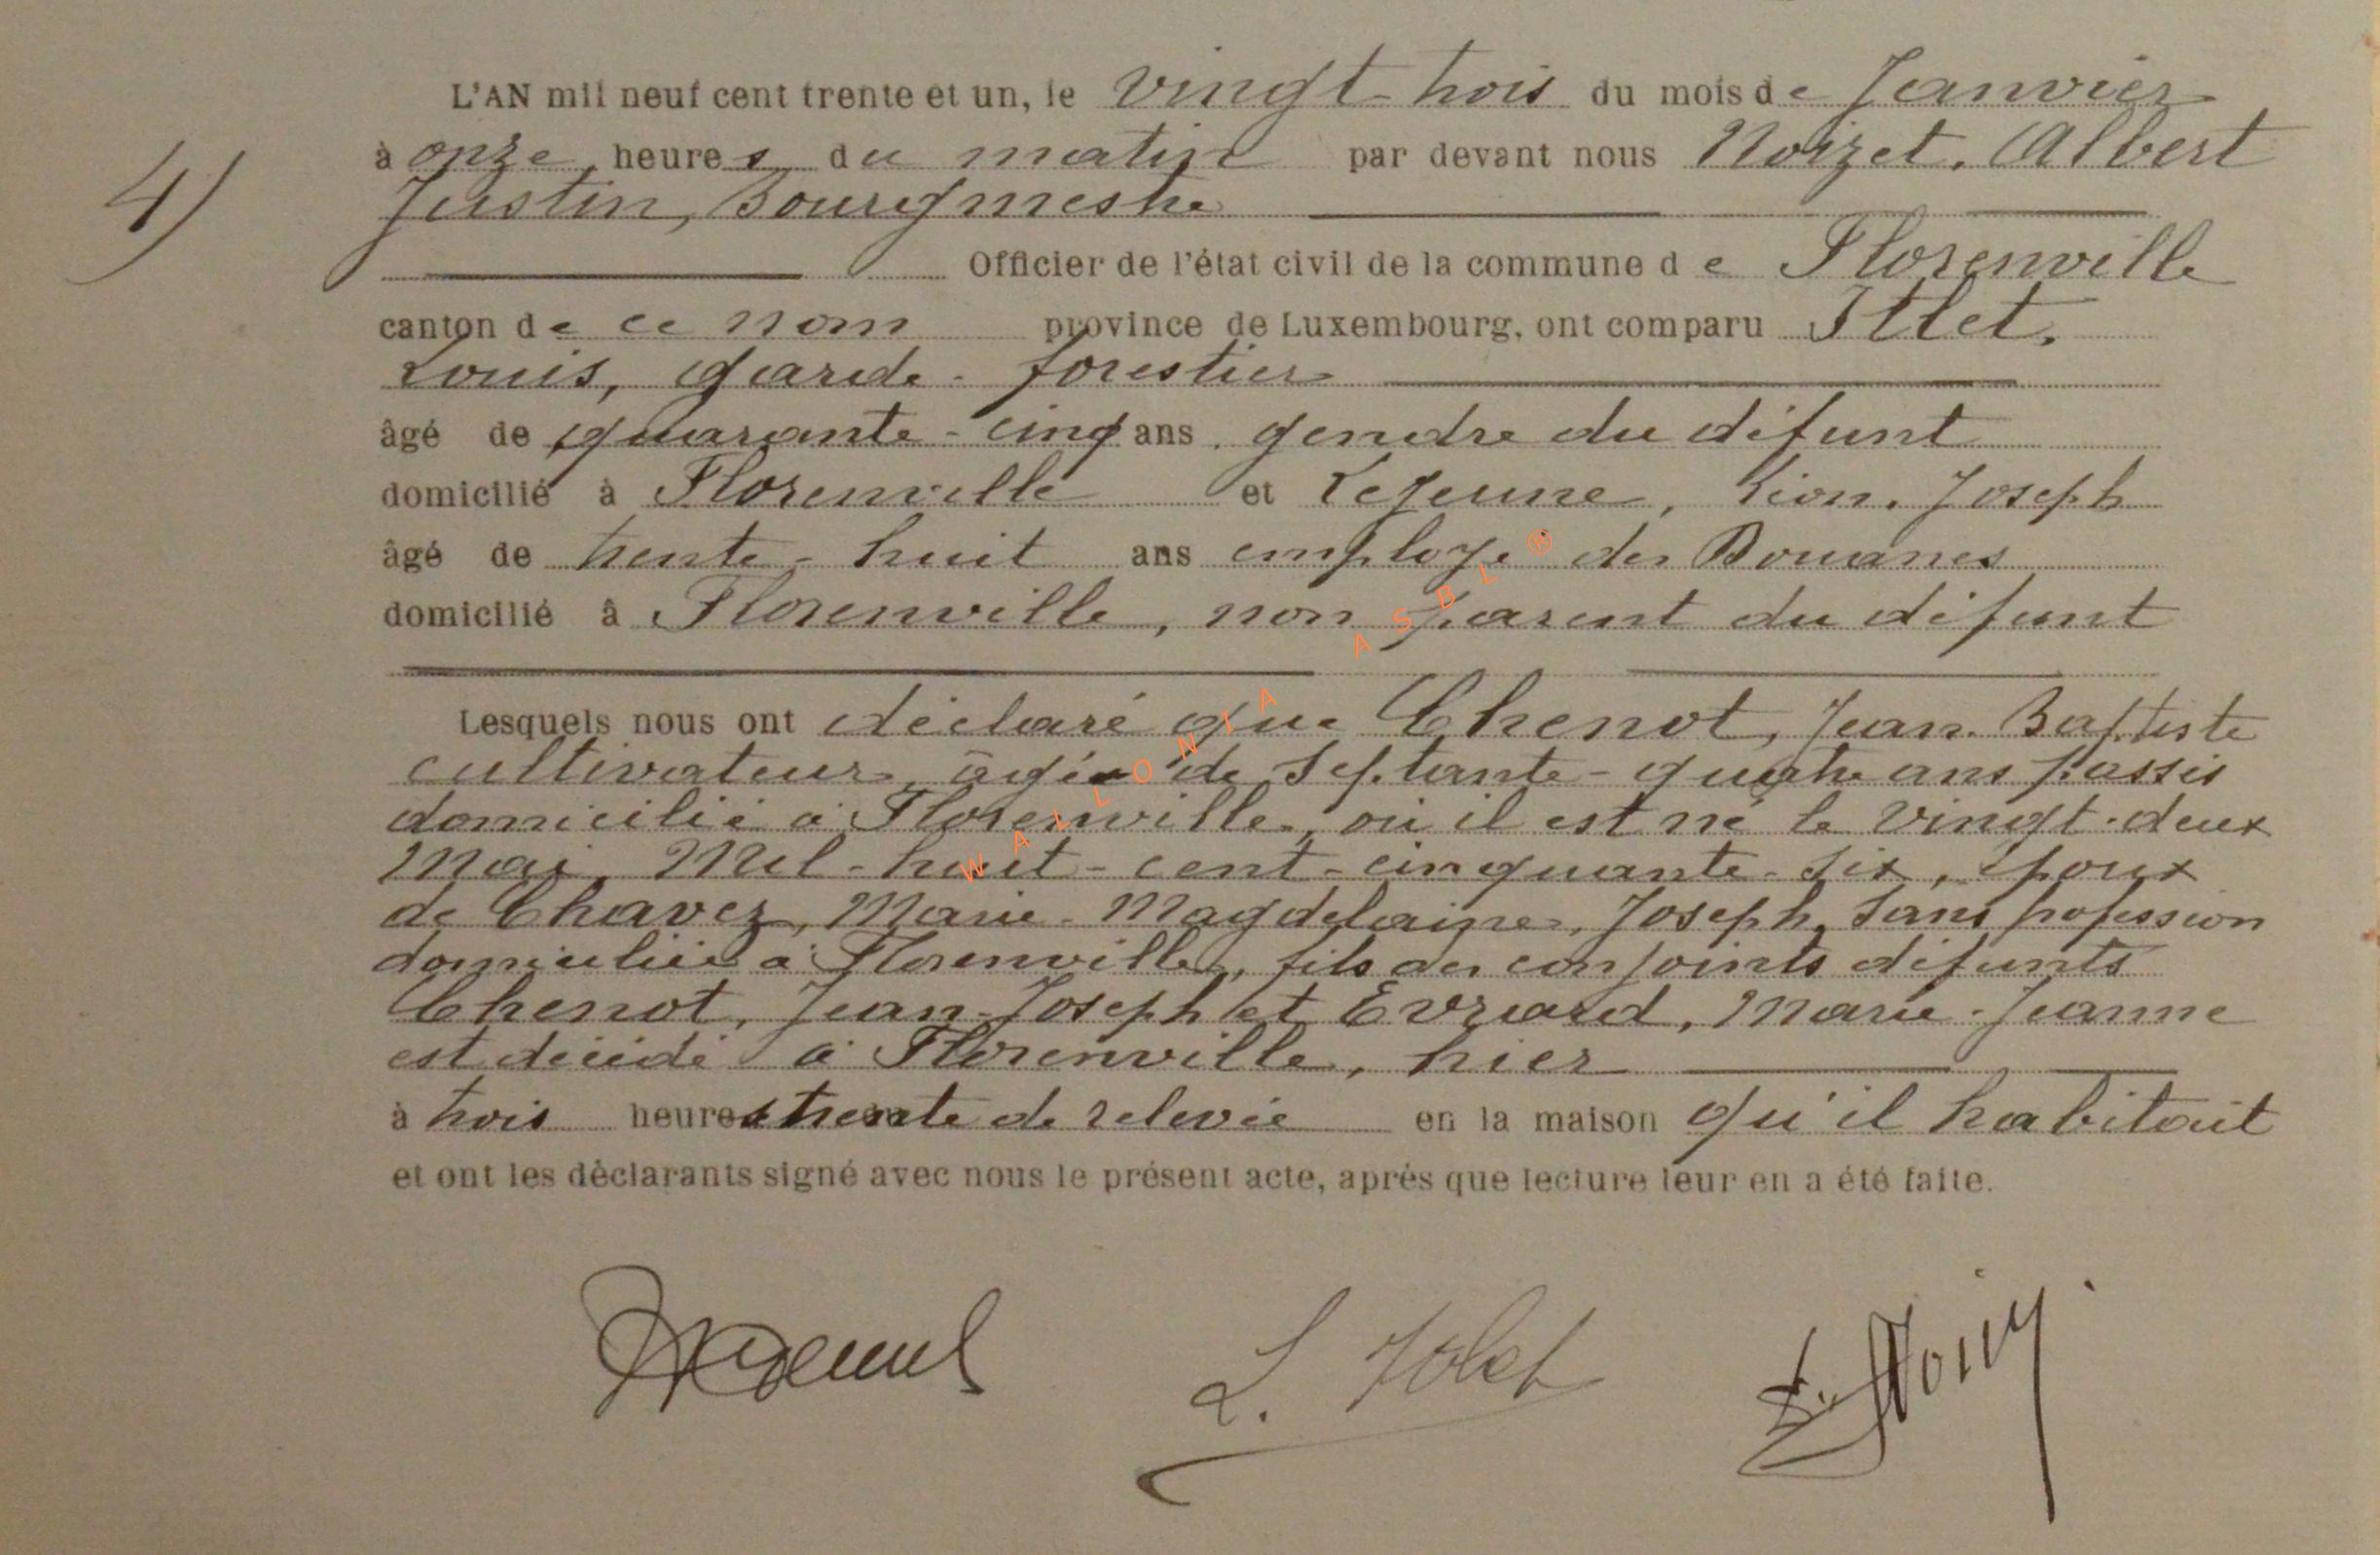 L'AN mil neuf cent trente et un, le vingt-trois du mois de Janvier
4) à onze heures du matin par devant nous Noizet, Albert
Justin, Bourgmestre
Officier de l'état civil de la commune de Florenville
canton de ce nom province de Luxembourg, ont comparu
Louis, garde-forestier
âgé de quarante-cinq ans, gendre du défunt
domicilié à Florenville et Lejeune, Léon, Joseph
âgé de trente-huit ans employé des Douanes
domicilié à Florenville, non parent du défunt
Lesquels nous ont déclaré que Chenot, Jean-Baptiste
cultivateur, âgé de septante-quatre ans passés
domicilié à Florenville, où il est né le vingt-deux
Mai, Mil-huit-cent-cinquante-six, époux
de Chavez, Marie-Magdelaine, Joseph, sans profession
domiciliée à Florenville, fils des conjoints défunts
Chenot, Jean-Joseph et Evrard, Marie-Jeanne
est décédé à Florenville, hier
à trois heures trente de relevée en la maison qu'il habitait
et ont les déclarants signé avec nous le présent acte, après que lecture leur en a été faite.
WALLONIA ASBL ®